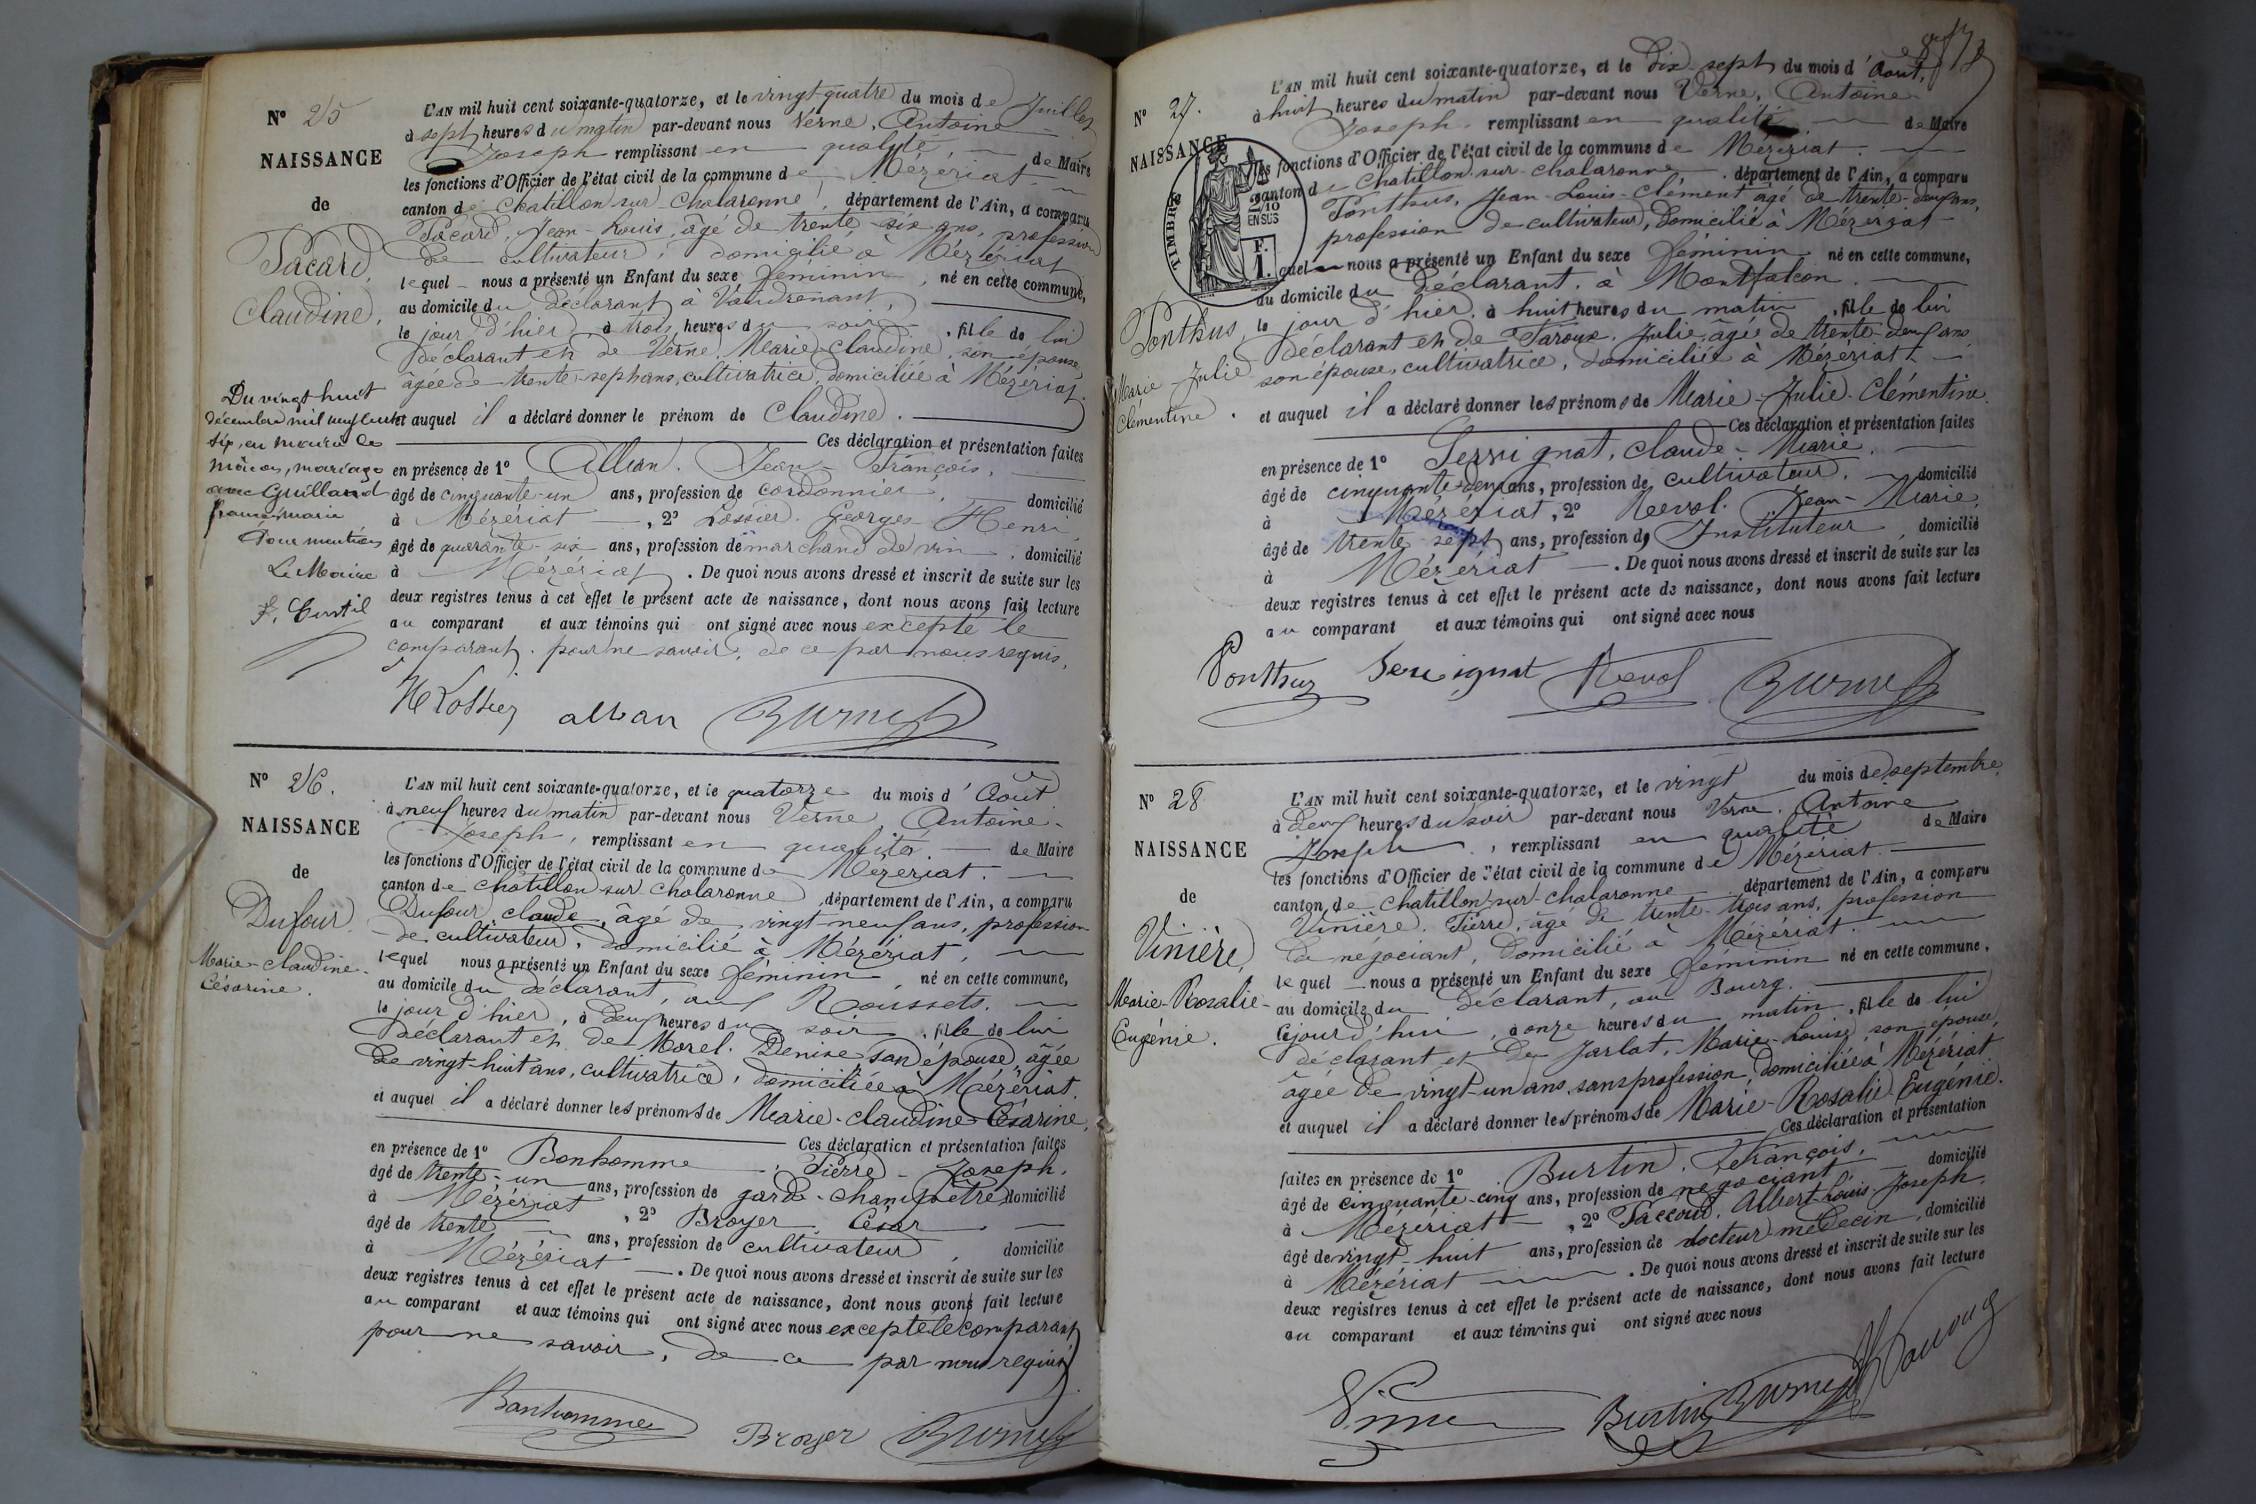 N° 25
NAISSANCE
de
Pacard,
Claudine,
Du vingt huit
décembre mil neuf cent
six, en mairie de
Mâcon, mariage
avec Guilland
Pour mention
Le Maire
L'AN mil huit cent soixante-quatorze, et le vingt-quatre du mois de Juillet
à sept heures du matin par-devant nous Verne, Antoine
Joseph remplissant en qualité de Maire
les fonctions d'Officier de l'état civil de la commune de Mézériat
canton de Chatillon sur Chalaronne, département de l'Ain, a comparu
Pacard, Jean-Louis, âgé de trente-six ans, profession
de cultivateur, domicilié à Mézériat
lequel nous a présenté un Enfant du sexe féminin, né en cette commune,
au domicile du déclarant à Vaudrenant,
le jour d'hier à trois heures du soir, fille de lui
déclarant et de Verne, Marie-Claudine, son épouse,
âgée de trente-sept ans, cultivatrice, domiciliée à Mézériat.
et auquel il a déclaré donner le prénom de Claudine.
Ces déclaration et présentation faites
en présence de 1° Alban, Jean-François,
âgé de cinquante-un ans, profession de cordonnier, domicilié
à Mézériat, 2° Lossier, Georges-Henri
âgé de quarante-six ans, profession de marchand de vin, domicilié
à Mézériat. De quoi nous avons dressé et inscrit de suite sur les
deux registres tenus à cet effet le présent acte de naissance, dont nous avons fait lecture
au comparant et aux témoins qui ont signé avec nous excepté le
comparant, pour ne savoir, de ce par nous requis.
H Lossier alban Verne
N° 26.
NAISSANCE
de
Dufour,
Marie-Claudine-
Césarine.
L'AN mil huit cent soixante-quatorze, et le quatorze du mois d'Août
à neuf heures du matin par-devant nous Verne, Antoine-
Joseph, remplissant en qualité de Maire
les fonctions d'Officier de l'état civil de la commune de Mézériat.
canton de Chatillon sur Chalaronne, département de l'Ain, a comparu
Dufour, claude, âgé de vingt-neuf ans, profession
de cultivateur, domicilié à Mézériat,
lequel nous a présenté un Enfant du sexe féminin né en cette commune,
au domicile du déclarant, aux Roussets.
le jour d'hier, à deux heures du soir, fille de lui
Déclarant et de Morel, Denise, son épouse, âgée
de vingt-huit ans, cultivatrice, domiciliée à Mézériat.
et auquel il a déclaré donner les prénoms de Marie-claudine-Césarine,
Ces déclaration et présentation faites
en présence de 1° Bonhomme, Pierre-Joseph,
âgé de trente-un ans, profession de garde-champêtre domicilié
à Mézériat, 2° Broyer, César
âgé de trente ans, profession de cultivateur, domicilié
à Mézériat. De quoi nous avons dressé et inscrit de suite sur les
deux registres tenus à cet effet le présent acte de naissance, dont nous avons fait lecture
au comparant et aux témoins qui ont signé avec nous excepté le comparant
pour ne savoir, de ce par nous requis
Bonhomme Broyer Verne
N° 27.
NAISSANCE
TIMBRE
2/10
EN SUS
F.
1.
Ponthus,
Marie-Julie
Clémentine.
L'AN mil huit cent soixante-quatorze, et le dix-sept du mois d'Août,
à huit heures du matin par-devant nous Verne, Antoine-
Joseph, remplissant en qualité de Maire
les fonctions d'Officier de l'état civil de la commune de Mézériat.
canton de Chatillon sur-chalaronne, département de l'Ain, a comparu
Ponthus, Jean-Louis-Clément âgé de trente-deux ans,
profession de cultivateur, domicilié à Mézériat
quel nous a présenté un Enfant du sexe féminin né en cette commune,
au domicile du déclarant, à Montfalcon.
le jour d'hier, à huit heures du matin, fille de lui
déclarant et de Faroux, Julie, âgée de trente-deux ans
son épouse, cultivatrice, domiciliée à Mézériat.
et auquel il a déclaré donner les prénoms de Marie-Julie-Clémentine.
Ces déclaration et présentation faites
en présence de 1° Servignat, Claude-Marie,
âgé de cinquante-deux ans, profession de cultivateur, domicilié
à Mézériat, 2° Revol, Jean-Marie,
âgé de trente-sept ans, profession d'Instituteur domicilié
à Mézériat. De quoi nous avons dressé et inscrit de suite sur les
deux registres tenus à cet effet le présent acte de naissance, dont nous avons fait lecture
au comparant et aux témoins qui ont signé avec nous
Ponthus Servignat Revol Verne
N° 28
NAISSANCE
de
Vinière,
Marie-Rosalie-
Eugénie.
L'AN mil huit cent soixante-quatorze, et le vingt du mois de septembre
à deux heures du soir par-devant nous Verne, Antoine
Joseph, remplissant en qualité de Maire
les fonctions d'Officier de l'état civil de la commune de Mézériat.
canton de Chatillon-sur-chalaronne département de l'Ain, a comparu
Vinière, Pierre, âgé de trente-trois ans, profession
de négociant, domicilié à Mézériat.
lequel nous a présenté un Enfant du sexe féminin né en cette commune,
au domicile du déclarant, au Bourg.
ce jour d'hui, à onze heures du matin, fille de lui
déclarant et de Jarlot, Marie-Louise, son épouse,
âgée de vingt-un ans, sans profession, domiciliée à Mézériat
et auquel il a déclaré donner les prénoms de Marie-Rosalie Eugénie.
Ces déclaration et présentation
faites en présence de 1° Burtin, François,
âgé de cinquante-cinq ans, profession de négociant, domicilié
à Mézériat, 2° Paccoud, Albert-Louis-Joseph,
âgé de vingt-huit ans, profession de docteur-médecin, domicilié
à Mézériat. De quoi nous avons dressé et inscrit de suite sur les
deux registres tenus à cet effet le présent acte de naissance, dont nous avons fait lecture
au comparant et aux témoins qui ont signé avec nous
Burtin Verne